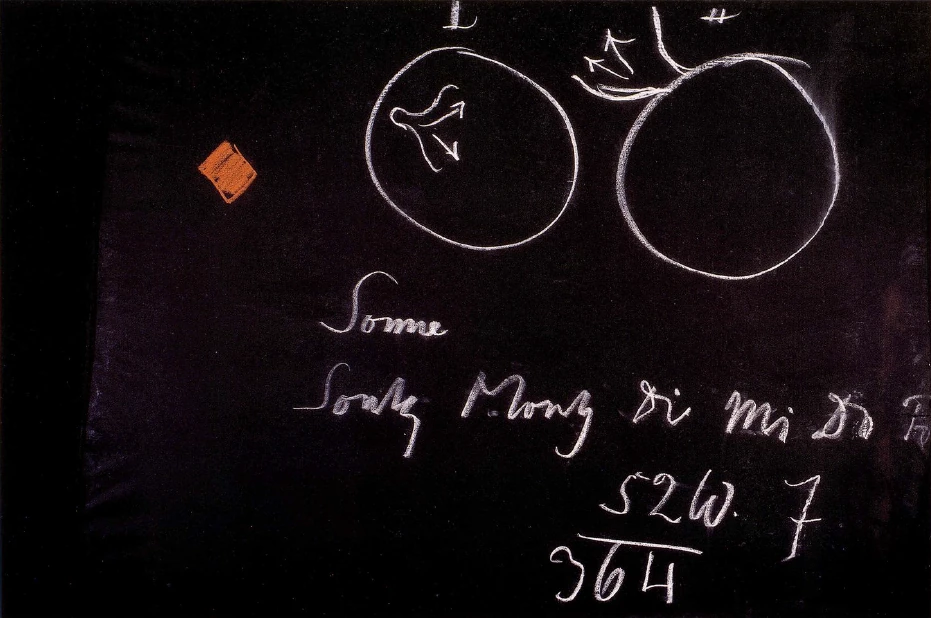 I II
Sonne
Sontg Montg Di Mi Do Fr
52W. 7
364